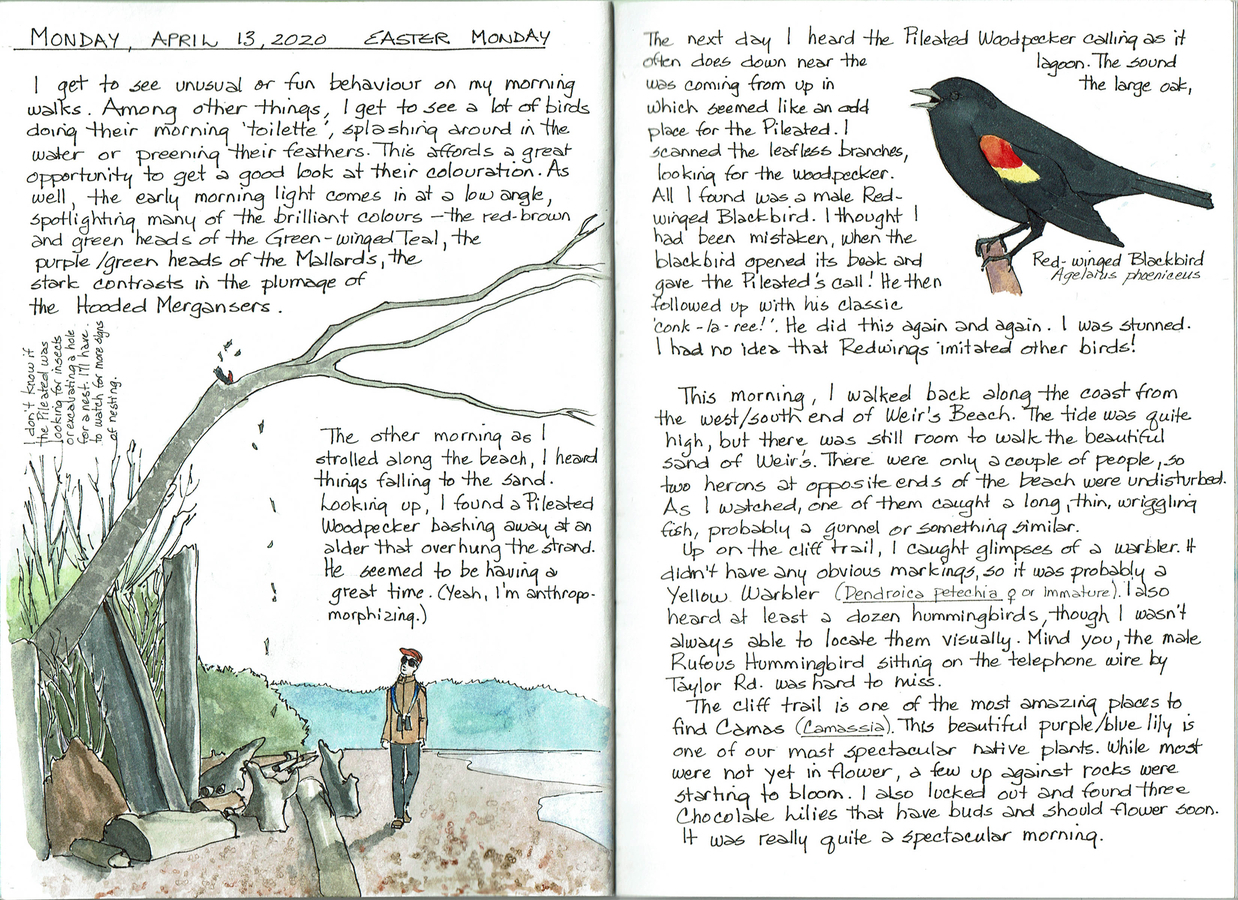 MONDAY, APRIL 13, 2020 EASTER MONDAY
I get to see unusual or fun behaviour on my morning
walks. Among other things, I get to see a lot of birds
doing their morning 'toilette', splashing around in the
water or preening their feathers. This affords a great
opportunity to get a good look at their colouration. As
well, the early morning light comes in at a low angle,
spotlighting many of the brilliant colours – the red-brown
and green heads of the Green-winged Teal, the
purple/green heads of the Mallards, the
stark contrasts in the plumage of
the Hooded Mergansers.
I don't know if
the Pileated was
looking for insects
or excavating a hole
for a nest. I'll have
to watch for more signs
of nesting.
The other morning as I
strolled along the beach, I heard
things falling to the sand.
Looking up, I found a Pileated
Woodpecker bashing away at an
alder that overhung the strand.
He seemed to be having a
great time. (Yeah, I'm anthropo-
morphizing.)
The next day I heard the Pileated Woodpecker calling as it
often does down near the lagoon. The sound
was coming from up in the large oak,
which seemed like an odd
place for the Pileated. I
scanned the leafless branches,
looking for the woodpecker.
All I found was a male Red-
winged Blackbird. I thought I
had been mistaken, when the
blackbird opened its beak and
gave the Pileated's call! He then
followed up with his classic
'conk-la-ree!'. He did this again and again. I was stunned.
I had no idea that Redwings imitated other birds!
Red-winged Blackbird
Agelaius phoeniceus
This morning, I walked back along the coast from
the west/south end of Weir's Beach. The tide was quite
high, but there was still room to walk the beautiful
sand of Weir's. There were only a couple of people, so
two herons at opposite ends of the beach were undisturbed.
As I watched, one of them caught a long, thin, wriggling
fish, probably a gunnel or something similar.
Up on the cliff trail, I caught glimpses of a warbler. It
didn't have any obvious markings, so it was probably a
Yellow Warbler (Dendroica petechia ♀ or immature). I also
heard at least a dozen hummingbirds, though I wasn't
always able to locate them visually. Mind you, the male
Rufous Hummingbird sitting on the telephone wire by
Taylor Rd. was hard to miss.
The cliff trail is one of the most amazing places to
find Camas (Camassia). This beautiful purple/blue lily is
one of our most spectacular native plants. While most
were not yet in flower, a few up against rocks were
starting to bloom. I also lucked out and found three
Chocolate Lilies that have buds and should flower soon.
It was really quite a spectacular morning.